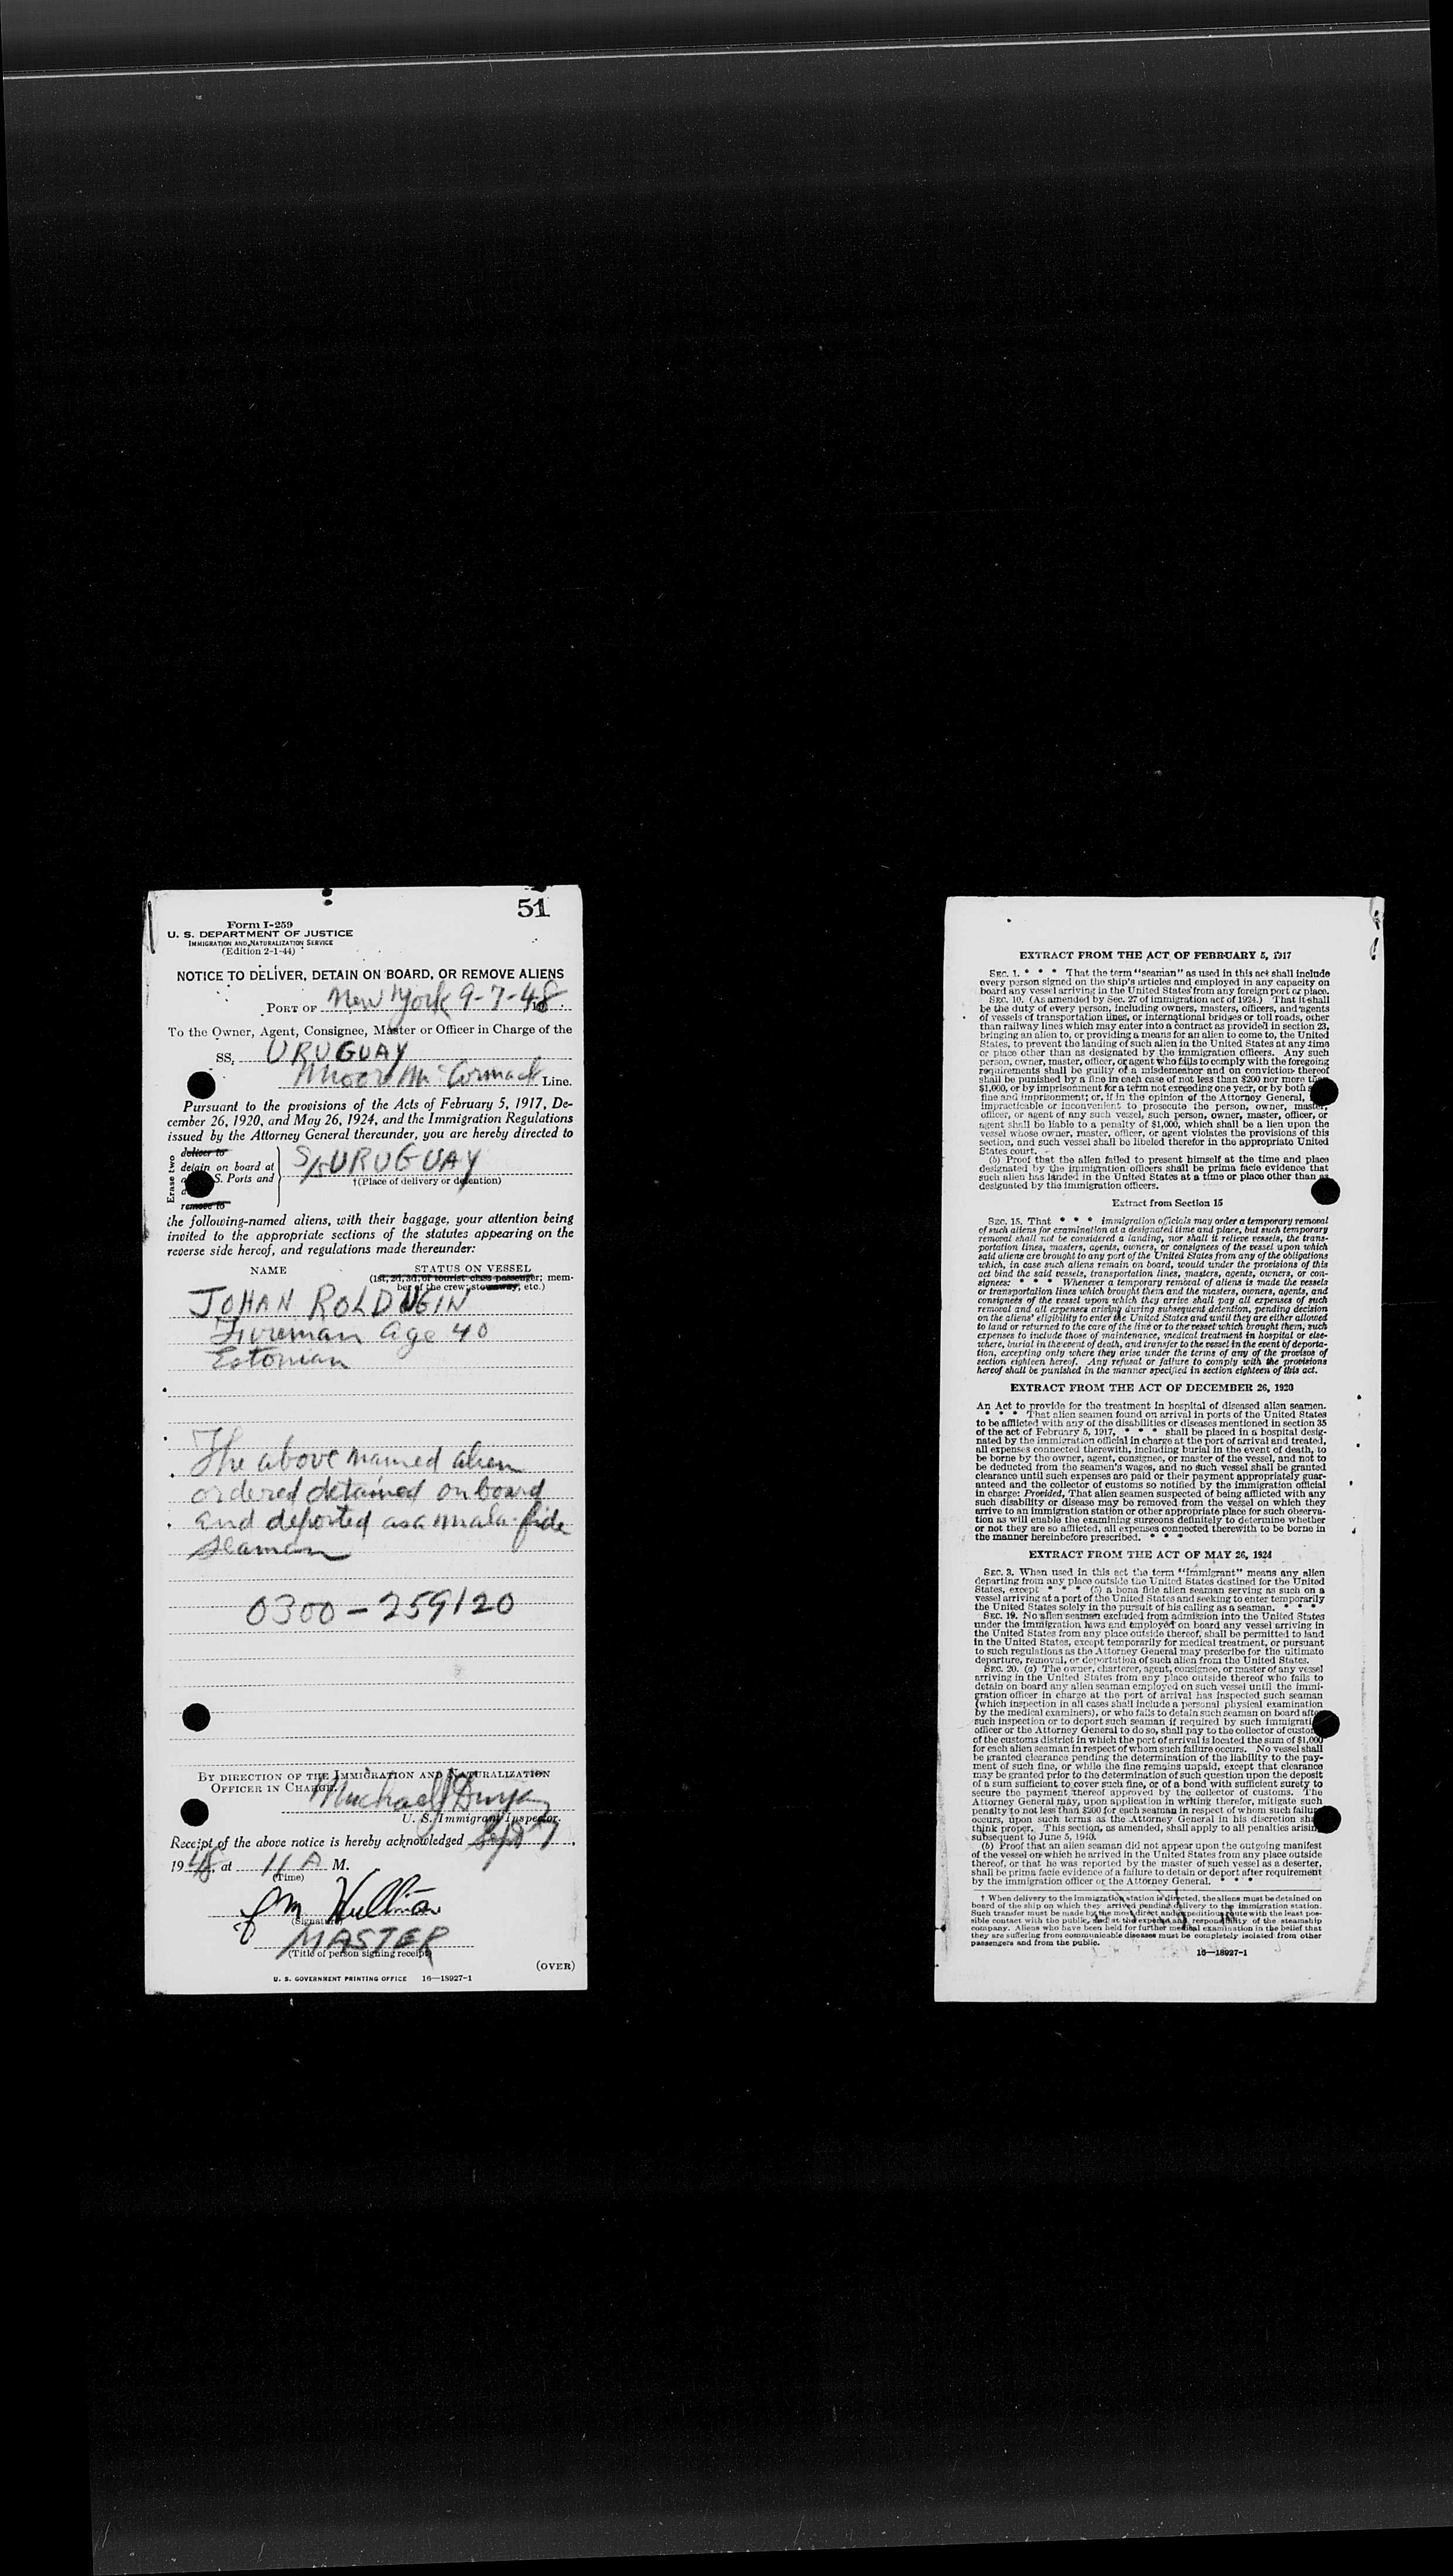 51
Form I-259
U. S. DEPARTMENT OF JUSTICE
IMMIGRATION AND NATURALIZATION SERVICE
(Edition 2-1-44)
NOTICE TO DELIVER, DETAIN ON BOARD, OR REMOVE ALIENS
PORT OF New York 9-7-48
To the Owner, Agent, Consignee, Master or Officer in Charge of the
SS. URUGUAY
Moore Mc Cormack Line.
Pursuant to the provisions of the Acts of February 5, 1917, De-
cember 26, 1920, and May 26, 1924, and the Immigration Regulations
issued by the Attorney General thereunder, you are hereby directed to
Erase two
deliver to
detain on board at
S. Ports and
remove to
S/S URUGUAY
†(Place of delivery or detention)
the following-named aliens, with their baggage, your attention being
invited to the appropriate sections of the statutes appearing on the
reverse side hereof, and regulations made thereunder:
NAME STATUS ON VESSEL
(1st, 2d, 3d, or tourist class passenger; mem-
ber of the crew; stowaway, etc.)
JOHAN ROLDUGIN
Fireman age 40
Estonian
The above named alien
ordered detained on board
and deported as a mala-fide
seaman
0300-259120
BY DIRECTION OF THE IMMIGRATION AND NATURALIZATION
OFFICER IN CHARGE.
Michael
U. S. Immigrant Inspector.
Receipt of the above notice is hereby acknowledged Sept 7,
1948, at 11 A M.
(Time)
(Signature)
MASTER
(Title of person signing receipt)
(OVER)
U. S. GOVERNMENT PRINTING OFFICE 16—18927-1
EXTRACT FROM THE ACT OF FEBRUARY 5, 1917
SEC. 1. * * * That the term "seaman" as used in this act shall include
every person signed on the ship's articles and employed in any capacity on
board any vessel arriving in the United States from any foreign port or place.
SEC. 10. (As amended by Sec. 27 of immigration act of 1924.) That it shall
be the duty of every person, including owners, masters, officers, and agents
of vessels of transportation lines, or international bridges or toll roads, other
than railway lines which may enter into a contract as provided in section 23,
bringing an alien to, or providing a means for an alien to come to, the United
States, to prevent the landing of such alien in the United States at any time
or place other than as designated by the immigration officers. Any such
person, owner, master, officer, or agent who fails to comply with the foregoing
requirements shall be guilty of a misdemeanor and on conviction thereof
shall be punished by a fine in each case of not less than $200 nor more than
$1,000, or by imprisonment for a term not exceeding one year, or by both
fine and imprisonment; or, if in the opinion of the Attorney General,
impracticable or inconvenient to prosecute the person, owner, master,
officer, or agent of any such vessel, such person, owner, master, officer, or
agent shall be liable to a penalty of $1,000, which shall be a lien upon the
vessel whose owner, master, officer, or agent violates the provisions of this
section, and such vessel shall be libeled therefor in the appropriate United
States court.
(b) Proof that the alien failed to present himself at the time and place
designated by the immigration officers shall be prima facie evidence that
such alien has landed in the United States at a time or place other than as
designated by the immigration officers.
Extract from Section 15
SEC. 15. That * * * immigration officials may order a temporary removal
of such aliens for examination at a designated time and place, but such temporary
removal shall not be considered a landing, nor shall it relieve vessels, the trans-
portation lines, masters, agents, owners, or consignees of the vessel upon which
said aliens are brought to any port of the United States from any of the obligations
which, in case such aliens remain on board, would under the provisions of this
act bind the said vessels, transportation lines, masters, agents, owners, or con-
signees: * * * Whenever a temporary removal of aliens is made the vessels
or transportation lines which brought them and the masters, owners, agents, and
consignees of the vessel upon which they arrive shall pay all expenses of such
removal and all expenses arising during subsequent detention, pending decision
on the aliens' eligibility to enter the United States and until they are either allowed
to land or returned to the care of the line or to the vessel which brought them, such
expenses to include those of maintenance, medical treatment in hospital or else-
where, burial in the event of death, and transfer to the vessel in the event of deporta-
tion, excepting only where they arise under the terms of any of the provisos of
section eighteen hereof. Any refusal or failure to comply with the provisions
hereof shall be punished in the manner specified in section eighteen of this act.
EXTRACT FROM THE ACT OF DECEMBER 26, 1920
An Act to provide for the treatment in hospital of diseased alien seamen.
* * * That alien seamen found on arrival in ports of the United States
to be afflicted with any of the disabilities or diseases mentioned in section 35
of the act of February 5, 1917, * * * shall be placed in a hospital desig-
nated by the immigration official in charge at the port of arrival and treated,
all expenses connected therewith, including burial in the event of death, to
be borne by the owner, agent, consignee, or master of the vessel, and not to
be deducted from the seamen's wages, and no such vessel shall be granted
clearance until such expenses are paid or their payment appropriately guar-
anteed and the collector of customs so notified by the immigration official
in charge: Provided, That alien seamen suspected of being afflicted with any
such disability or disease may be removed from the vessel on which they
arrive to an immigration station or other appropriate place for such observa-
tion as will enable the examining surgeons definitely to determine whether
or not they are so afflicted, all expenses connected therewith to be borne in
the manner hereinbefore prescribed. * * *
EXTRACT FROM THE ACT OF MAY 26, 1924
SEC. 3. When used in this act the term "immigrant" means any alien
departing from any place outside the United States destined for the United
States, except * * * (5) a bona fide alien seaman serving as such on a
vessel arriving at a port of the United States and seeking to enter temporarily
the United States solely in the pursuit of his calling as a seaman. * * *
SEC. 19. No alien seaman excluded from admission into the United States
under the immigration laws and employed on board any vessel arriving in
the United States from any place outside thereof, shall be permitted to land
in the United States, except temporarily for medical treatment, or pursuant
to such regulations as the Attorney General may prescribe for the ultimate
departure, removal, or deportation of such alien from the United States.
SEC. 20. (a) The owner, charterer, agent, consignee, or master of any vessel
arriving in the United States from any place outside thereof who fails to
detain on board any alien seaman employed on such vessel until the immi-
gration officer in charge at the port of arrival has inspected such seaman
(which inspection in all cases shall include a personal physical examination
by the medical examiners), or who fails to detain such seaman on board after
such inspection or to deport such seaman if required by such immigration
officer or the Attorney General to do so, shall pay to the collector of customs
of the customs district in which the port of arrival is located the sum of $1,000
for each alien seaman in respect of whom such failure occurs. No vessel shall
be granted clearance pending the determination of the liability to the pay-
ment of such fine, or while the fine remains unpaid, except that clearance
may be granted prior to the determination of such question upon the deposit
of a sum sufficient to cover such fine, or of a bond with sufficient surety to
secure the payment thereof approved by the collector of customs. The
Attorney General may, upon application in writing therefor, mitigate such
penalty to not less than $200 for each seaman in respect of whom such failure
occurs, upon such terms as the Attorney General in his discretion shall
think proper. This section, as amended, shall apply to all penalties arising
subsequent to June 5, 1940.
(b) Proof that an alien seaman did not appear upon the outgoing manifest
of the vessel on which he arrived in the United States from any place outside
thereof, or that he was reported by the master of such vessel as a deserter,
shall be prima facie evidence of a failure to detain or deport after requirement
by the immigration officer or the Attorney General. * * *
† When delivery to the immigration station is directed, the aliens must be detained on
board of the ship on which they arrived pending delivery to the immigration station.
Such transfer must be made by the most direct and expeditious route with the least pos-
sible contact with the public, and at the expense and responsibility of the steamship
company. Aliens who have been held for further medical examination in the belief that
they are suffering from communicable diseases must be completely isolated from other
passengers and from the public.
16—18927-1